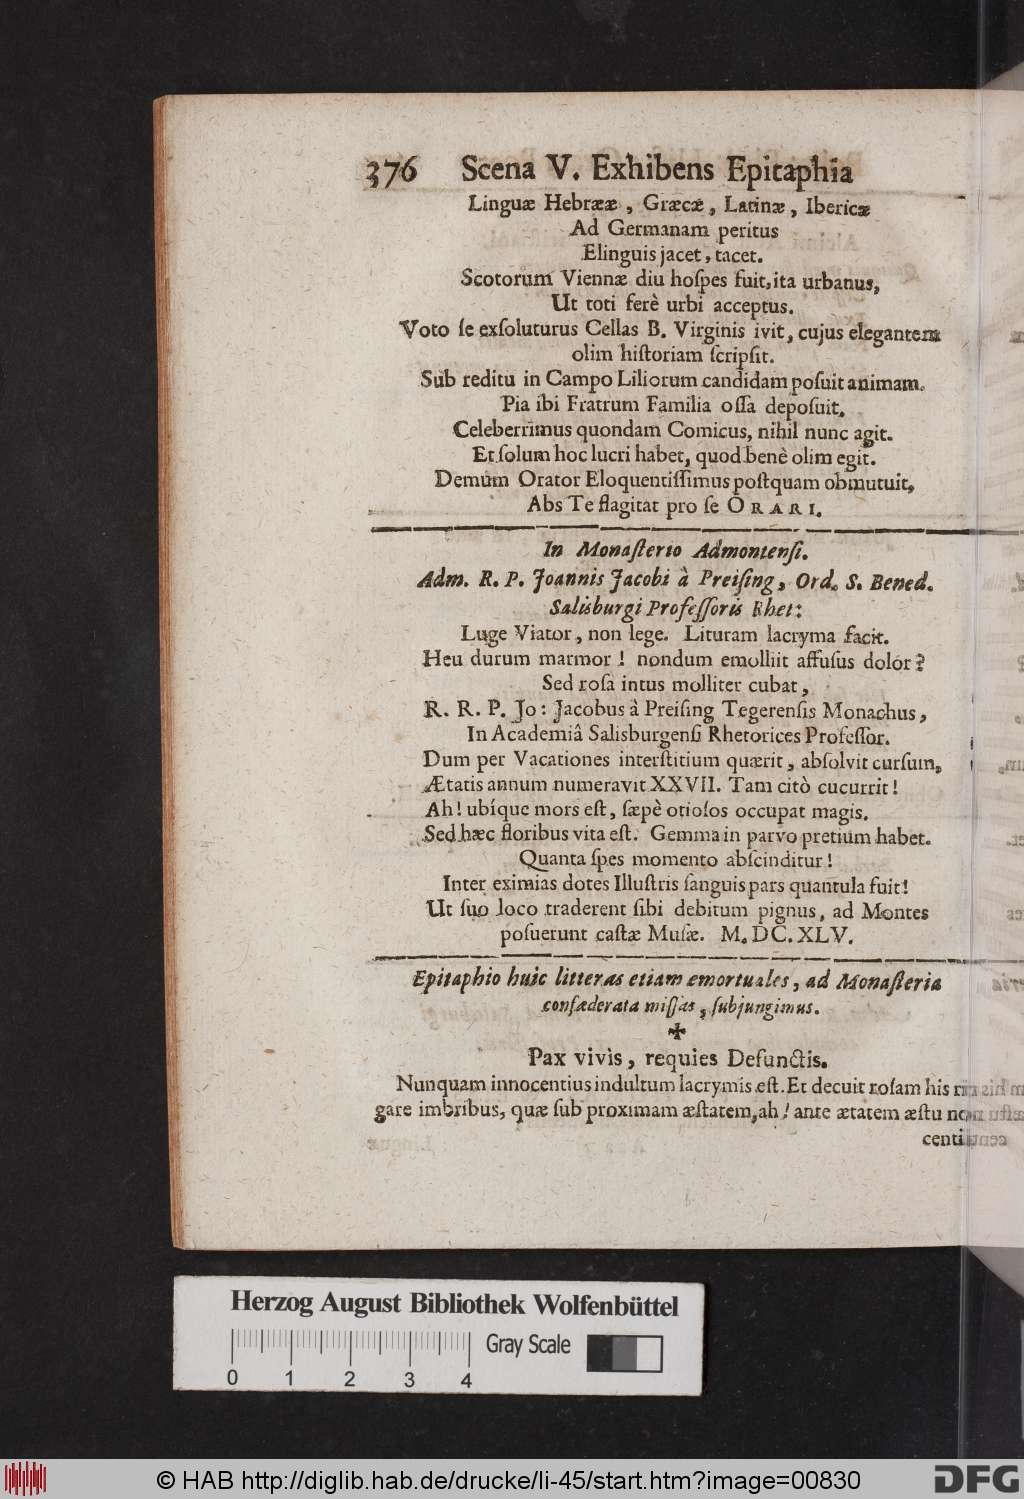 376 Scena V. Exhibens Epitaphia
Linguæ Hebrææ, Græcæ, Latinæ, Ibericæ
Ad Germanam peritus
Elinguis jacet, tacet.
Scotorum Viennæ diu hoſpes fuit, ita urbanus,
Ut toti ferè urbi acceptus.
Voto ſe exſoluturus Cellas B. Virginis ivit, cujus elegantem
olim hiſtoriam ſcripſit.
Sub reditu in Campo Liliorum candidam poſuit animam.
Pia ibi Fratrum Familia oſſa depoſuit.
Celeberrimus quondam Comicus, nihil nunc agit.
Et ſolum hoc lucri habet, quod benè olim egit.
Demum Orator Eloquentiſſimus poſtquam obmutuit,
Abs Te flagitat pro ſe ORARI.
In Monaſterio Admontenſi.
Adm. R. P. Joannis Jacobi à Preiſing, Ord. S. Bened.
Salisburgi Profeſſoris Rhet:
Luge Viator, non lege. Lituram lacryma facit.
Heu durum marmor! nondum emolliit affuſus dolor?
Sed roſa intus molliter cubat,
R. R. P. Jo: Jacobus à Preiſing Tegerenſis Monachus,
In Academiâ Salisburgenſi Rhetorices Profeſſor.
Dum per Vacationes interſtitium quærit, abſolvit curſum,
Ætatis annum numeravit XXVII. Tam citò cucurrit!
Ah! ubíque mors eſt, ſæpè otioſos occupat magis.
Sed hæc floribus vita eſt. Gemma in parvo pretium habet.
Quanta ſpes momento abſcinditur!
Inter eximias dotes Illuſtris ſanguis pars quantula fuit!
Ut ſuo loco traderent ſibi debitum pignus, ad Montes
poſuerunt caſtæ Muſæ. M. DC. XLV.
Epitaphio huic litteras etiam emortuales, ad Monaſteria
confæderata miſſas, ſubjungimus.
✠
Pax vivis, requies Defunctis.
Nunquam innocentius indultum lacrymis eſt. Et decuit roſam his
gare imbribus, quæ ſub proximam æſtatem, ah! ante ætatem æſtu non
centi
Herzog August Bibliothek Wolfenbüttel
Gray Scale
0 1 2 3 4
© HAB http://diglib.hab.de/drucke/li-45/start.htm?image=00830
DFG